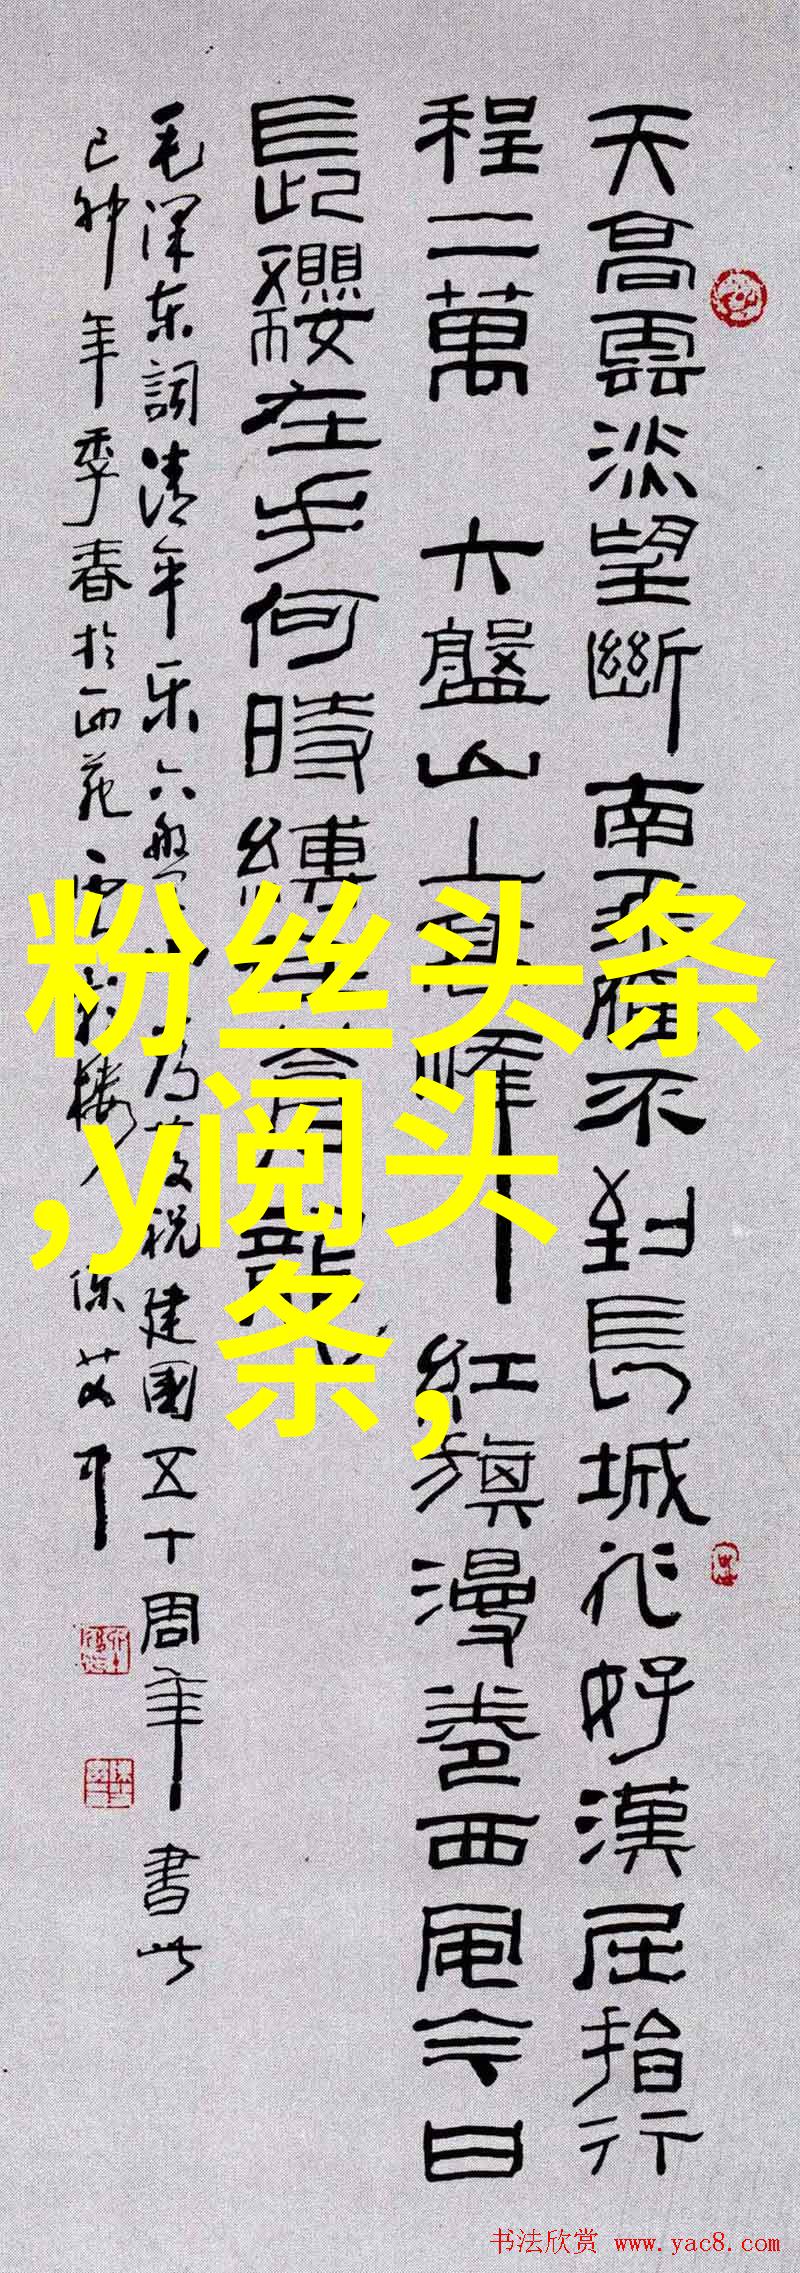 天高雲淡望斷南飛雁不到長城非好漢屈指行
程二萬 六盤山上高峰 紅旗漫卷西風今日
長纓在手何時縛住蒼龍
毛泽东詞清平乐六盤山 为慶祝建國五十周年書此
己卯年季春於西苑
粉丝头条
,y阅头
条,
书法欣赏 www.yac8.com